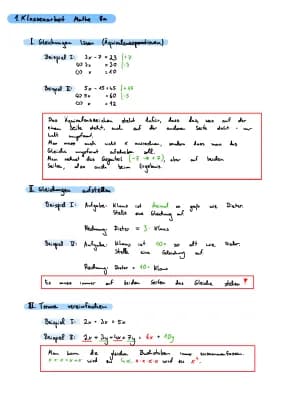 1. Klassenarbeit Mathe 8a
I. Gleichungen lösen (Äquivalenzoperationen)
Beispiel I: 3x - 7 = 23 | +7
(=) 3x = 30 | :3
(=) x = 10
Beispiel II: 5x - 15 = 45 | +15
(=) 5x = 60 | :5
(=) x = 12
Das Äquivalenzzeichen steht dafür, dass das, was auf der
einen Seite steht, auch auf der anderen Seite steht - nur
umgeformt.
Man muss auch nicht x ausrechnen, sondern dass man das
Gleiche
Man nimmt das Gegenteil (-7 → +7), aber auf beiden
Seiten, also auch beim Ergebnis.
II. Gleichungen aufstellen
Beispiel I: Aufgabe: Klaus ist dreimal so groß wie Dieter.
Stelle eine Gleichung auf.
Rechnung: Dieter = 3 · Klaus
Beispiel II: Aufgabe: Klaus ist 10x so alt wie Dieter.
Stelle eine Gleichung auf.
Rechnung: Dieter = 10 · Klaus
Es muss immer auf beiden Seiten das Gleiche stehen!
III. Terme vereinfachen
Beispiel I: 2x + 3x = 5x
Beispiel II: 2x + 3y + 4x + 7y = 6x + 10y
Man kann die gleichen Buchstaben immer zusammenfassen.
x+x+x+x wird zu 4x, x·x·x·x·x wird zu x⁵.